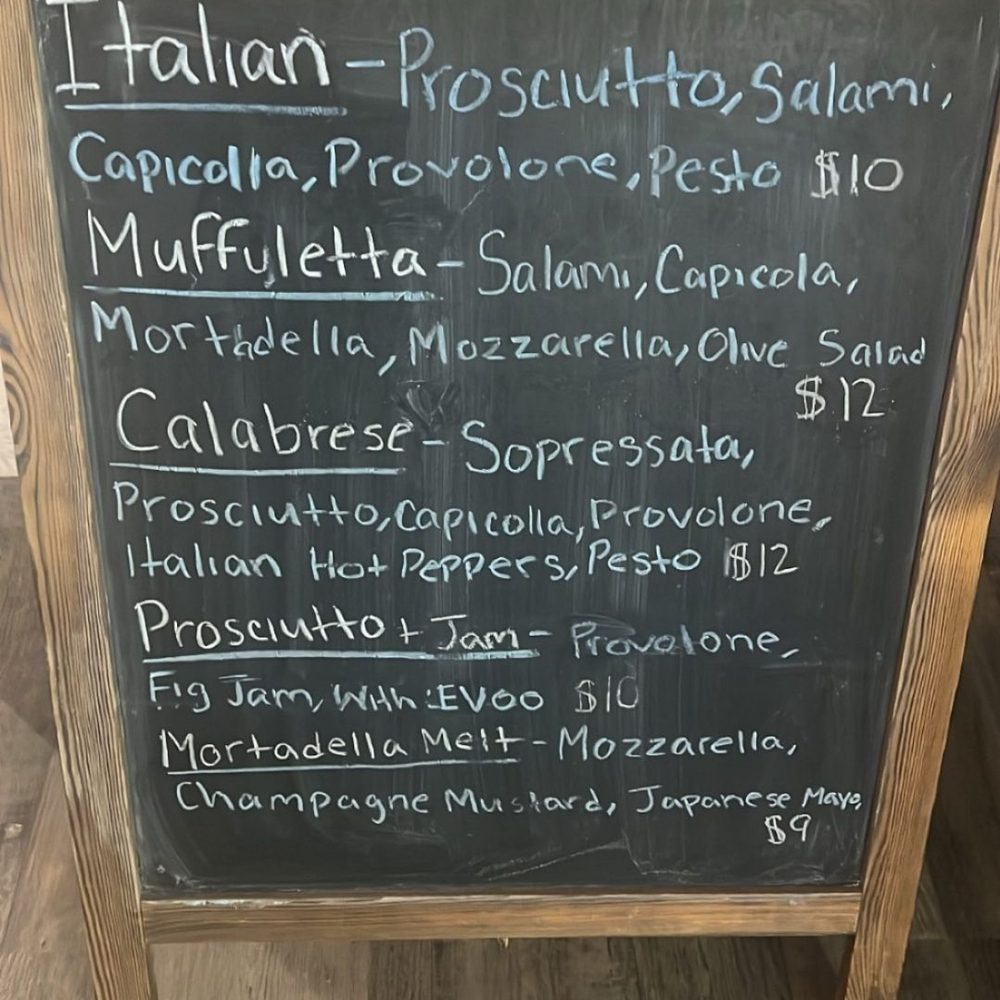 Italian - Prosciutto, Salami,
Capicolla, Provolone, Pesto $10
Muffuletta - Salami, Capicola,
Mortadella, Mozzarella, Olive Salad
$12
Calabrese - Sopressata,
Prosciutto, Capicolla, Provolone,
Italian Hot Peppers, Pesto $12
Prosciutto + Jam - Provolone,
Fig Jam, With EVOO $10
Mortadella Melt - Mozzarella,
Champagne Mustard, Japanese Mayo,
$9